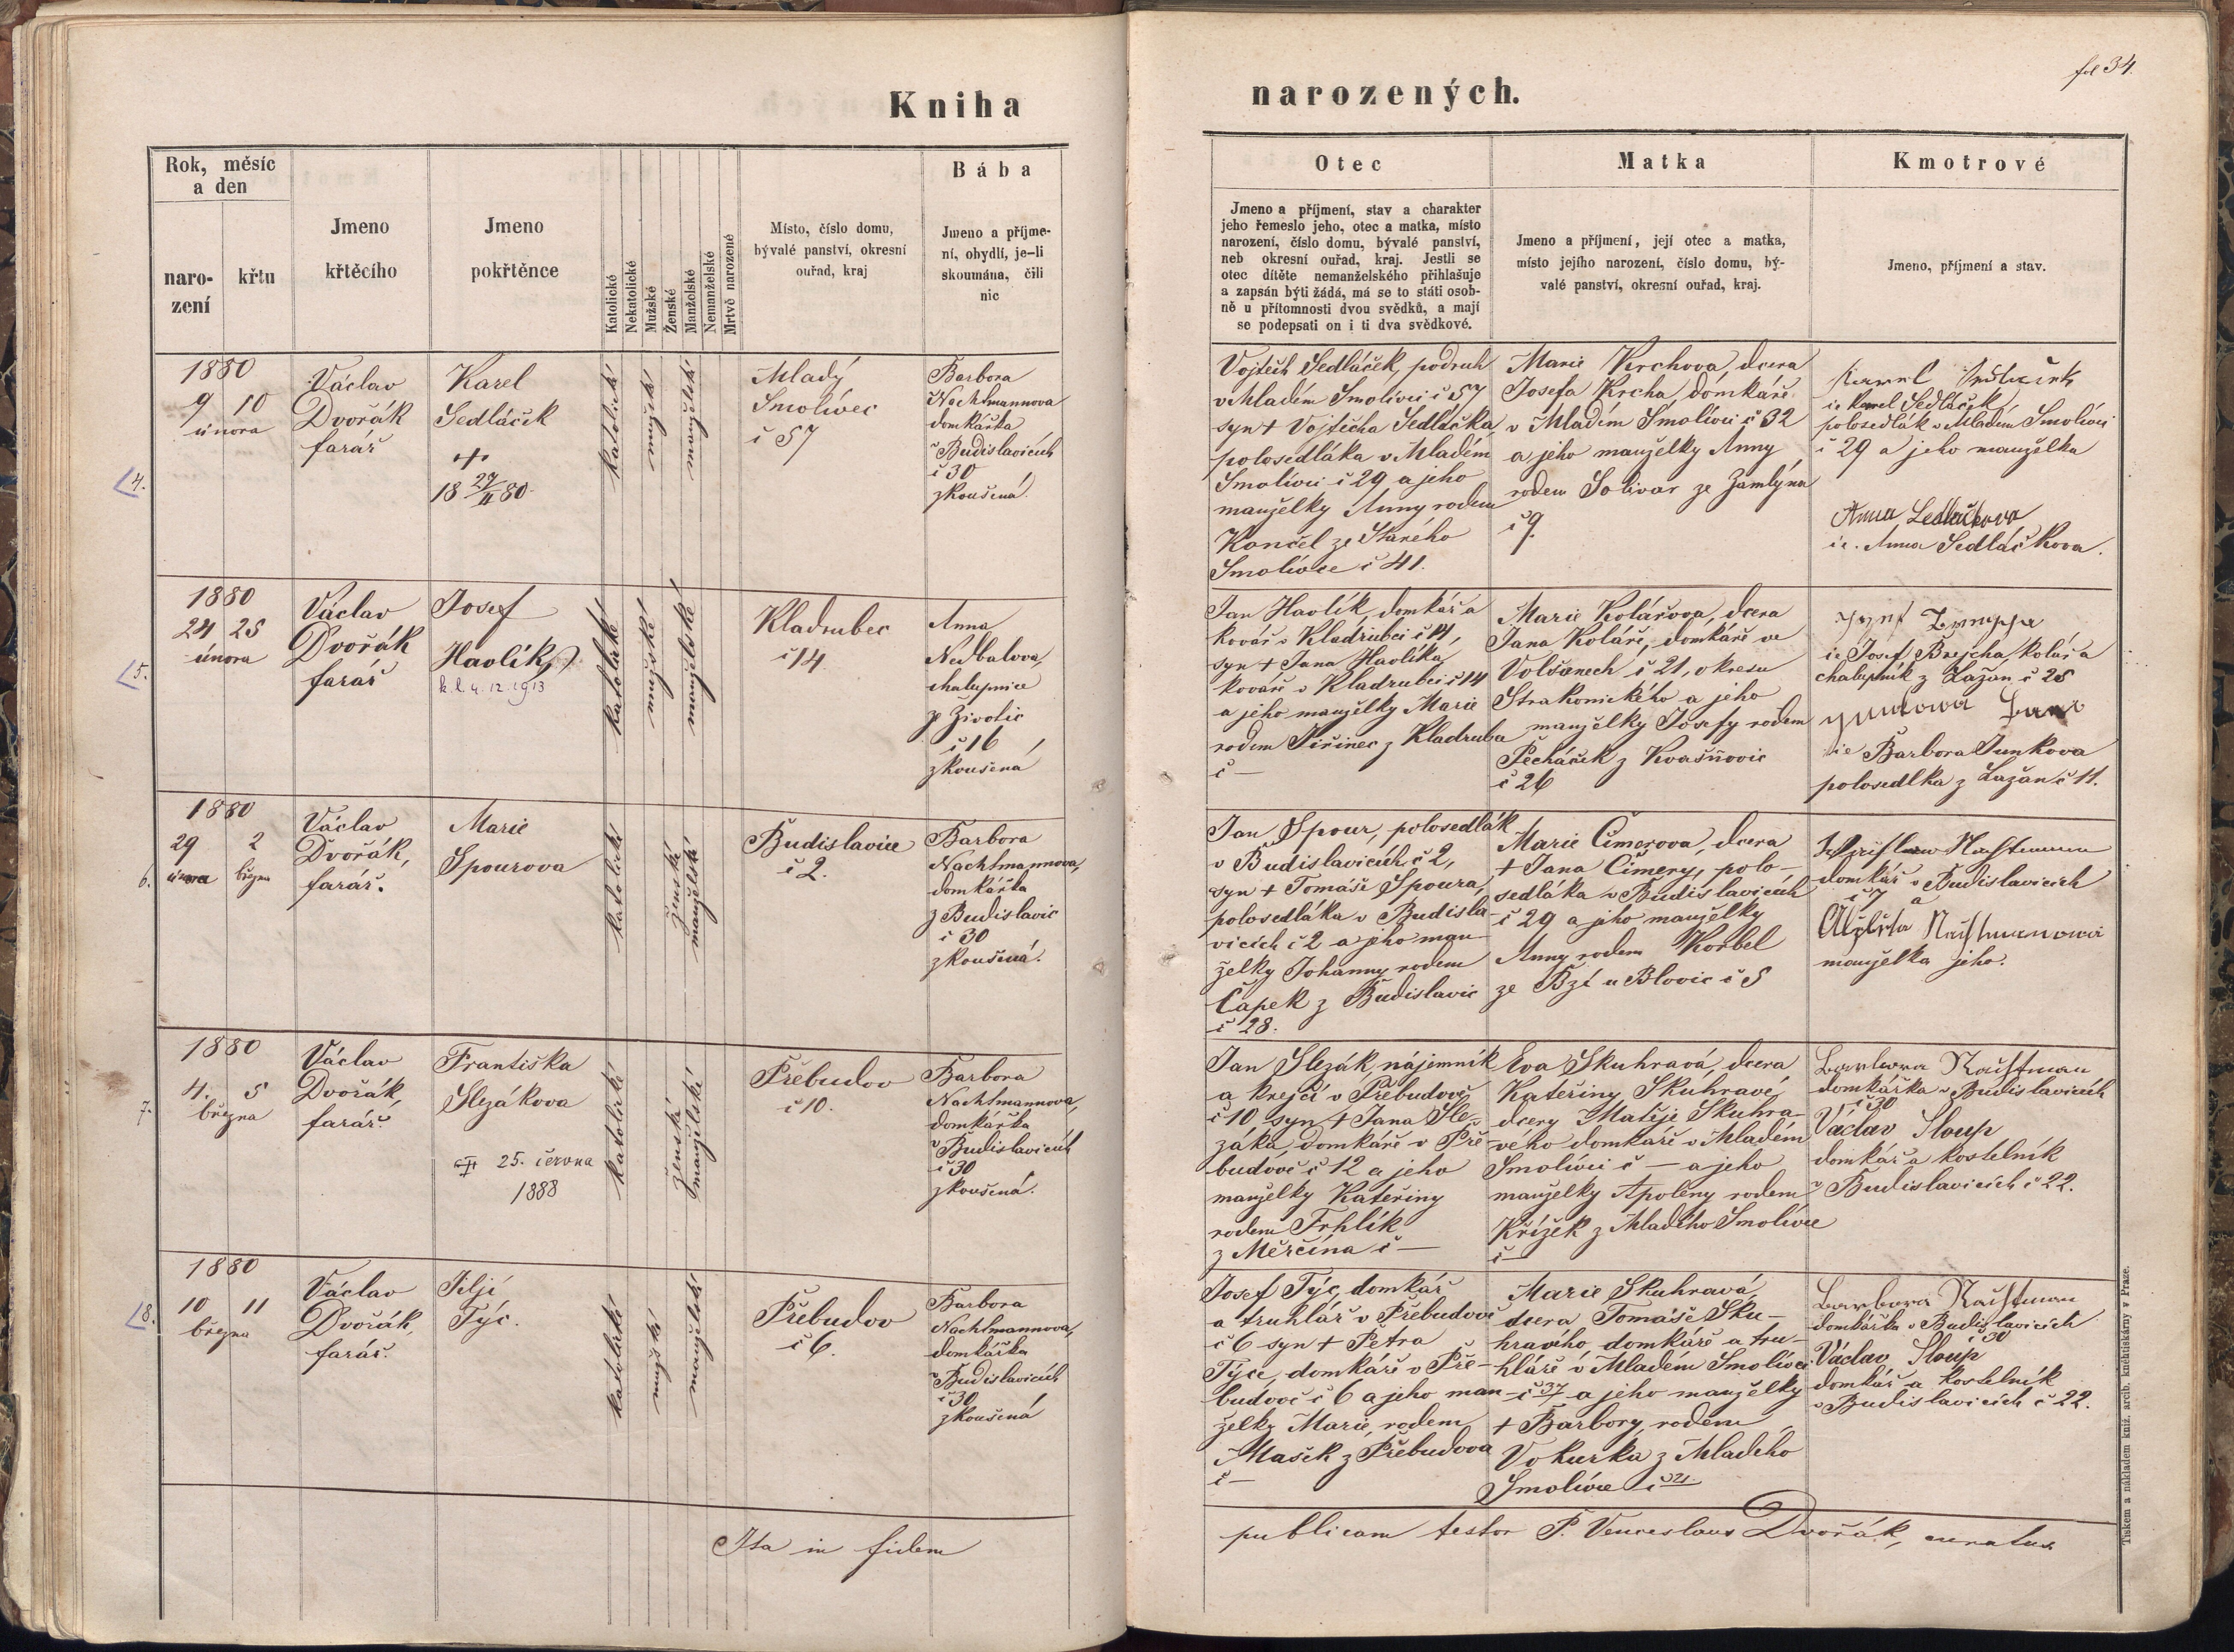 fol 34.
Kniha narozených.
Rok, měsíc
a den
naro-
zení
křtu
Jmeno
křtěcího
Jmeno
pokřtěnce
Katolické
Nekatolické
Mužské
Ženské
Manželské
Nemanželské
Mrtvě narozené
Místo, číslo domu,
bývalé panství, okresní
ouřad, kraj
Bába
Jmeno a příjme-
ní, obydlí, je-li
skoumána, čili
nic
Otec
Jmeno a příjmení, stav a charakter
jeho řemeslo jeho, otec a matka, místo
narození, číslo domu, bývalé panství,
neb okresní ouřad, kraj. Jestli se
otec dítěte nemanželského přihlašuje
a zapsán býti žádá, má se to státi osob-
ně u přítomnosti dvou svědků, a mají
se podepsati on i ti dva svědkové.
Matka
Jmeno a příjmení, její otec a matka,
místo jejího narození, číslo domu, bý-
valé panství, okresní ouřad, kraj.
Kmotrové
Jmeno, příjmení a stav.
4.
1880
9 10
února
Václav
Dvořák
farář
Karel
Sedláček
18 27/II 80
katolické
mužské
manželské
Mladý
Smolivec
č 57
Barbora
Nachtmannova
domkářka
v Budislavicích
č 30
zkoušená.
Vojtěch Sedláček, podruh
v Mladém Smolivci č 57
syn + Vojtěcha Sedláčka,
polosedláka v Mladém
Smolivci č 29 a jeho
manželky Anny rodem
Končel ze Starého
Smolivce č 41.
Marie Krchova, dcera
Josefa Krcha, domkáře
v Mladém Smolivci č 32
a jeho manželky Anny
rodem Solivar ze Zamlýna
č 9.
Karel Sedláček
ie Karel Sedláček,
polosedlák v Mladém Smolivci
č 29 a jeho manželka
Anna Sedláčkova
ie. Anna Sedláčkova.
5.
1880
24 25
února
Václav
Dvořák
farář
Josef
Havlík
k. l. 4. 12. 1913
katolické
mužské
manželské
Kladrubec
č 14
Anna
Nedbalova,
chalupnice
ze Životic
č 16
zkoušená
Jan Havlík, domkář a
kovář v Kladrubci č 14,
syn + Jana Havlíka,
kováře v Kladrubci č 14
a jeho manželky Marie
rodem Jiřinec z Kladruba
č —
Marie Kolářova, dcera
Jana Koláře, domkáře ve
Volšanech č 21, okresu
Strakonického a jeho
manželky Josefy rodem
Pecháček z Kvašňovic
č 26
ie Josef Brejcha, kolář a
chalupník z Lažan č 25
ie Barbora Junkova
polosedlka z Lažan č 11.
6.
1880
29 2
února března
Václav
Dvořák,
farář.
Marie
Spourova
katolické
ženské
manželské
Budislavice
č 2.
Barbora
Nachtmannova,
domkářka
z Budislavic
č 30
zkoušená.
Jan Spour, polosedlák
v Budislavicích č 2,
syn + Tomáše Spoura,
polosedláka v Budisla-
vicích č 2 a jeho man-
želky Johanny rodem
Čapek z Budislavic
č 28.
Marie Cimerova, dcera
+ Jana Cimery, polo-
sedláka v Budislavicích
č 29 a jeho manželky
Anny rodem Korbel
ze Bzí u Blovic č 5
domkář v Budislavicích
č 7 a
manželka jeho.
7.
1880
4. 5
března
Václav
Dvořák,
farář.
Františka
Slezákova
25. června
1888
katolické
ženské
manželské
Přebudov
č 10.
Barbora
Nachtmannova,
domkářka
v Budislavicích
č 30
zkoušená.
Jan Slezák, nájemník
a krejčí v Přebudově
č 10 syn + Jana Sle-
záka, domkáře v Pře-
budově č 12 a jeho
manželky Kateřiny
rodem Frhlík
z Měrčína č —
Eva Skuhravá, dcera
Kateřiny Skuhravé,
dcery Matěje Skuhra-
vého domkáře v Mladém
Smolivci č — a jeho
manželky Apoleny rodem
Křížek z Mladého Smolivce
č —
Barbora Nachtman
domkářka v Budislavicích
č 30
Václav Sloup
domkář a kostelník
v Budislavicích č 22.
8.
1880
10 11
března
Václav
Dvořák,
farář.
Jiljí
Týc.
katolické
mužské
manželské
Přebudov
č 6.
Barbora
Nachtmannova,
domkářka
v Budislavicích
č 30
zkoušená
Josef Týc, domkář
a truhlář v Přebudově
č 6 syn + Petra
Týce, domkáře v Pře-
budově č 6 a jeho man-
želky Marie, rodem
Mašek z Přebudova
č —
Marie Skuhravá,
dcera Tomáše Sku-
hravého, domkáře a tru-
hláře v Mladém Smolivci
č 37 a jeho manželky
+ Barbory, rodem
Vokurka z Mladého
Smolivce č 21
Barbora Nachtman
domkářka v Budislavicích
č 30
Václav Sloup
domkář a kostelník
v Budislavicích č 22.
Ita in fidem publicam testor P. Venceslaus Dvořák, curatus.
Tiskem a nákladem kníž. arcib. knihtiskárny v Praze.